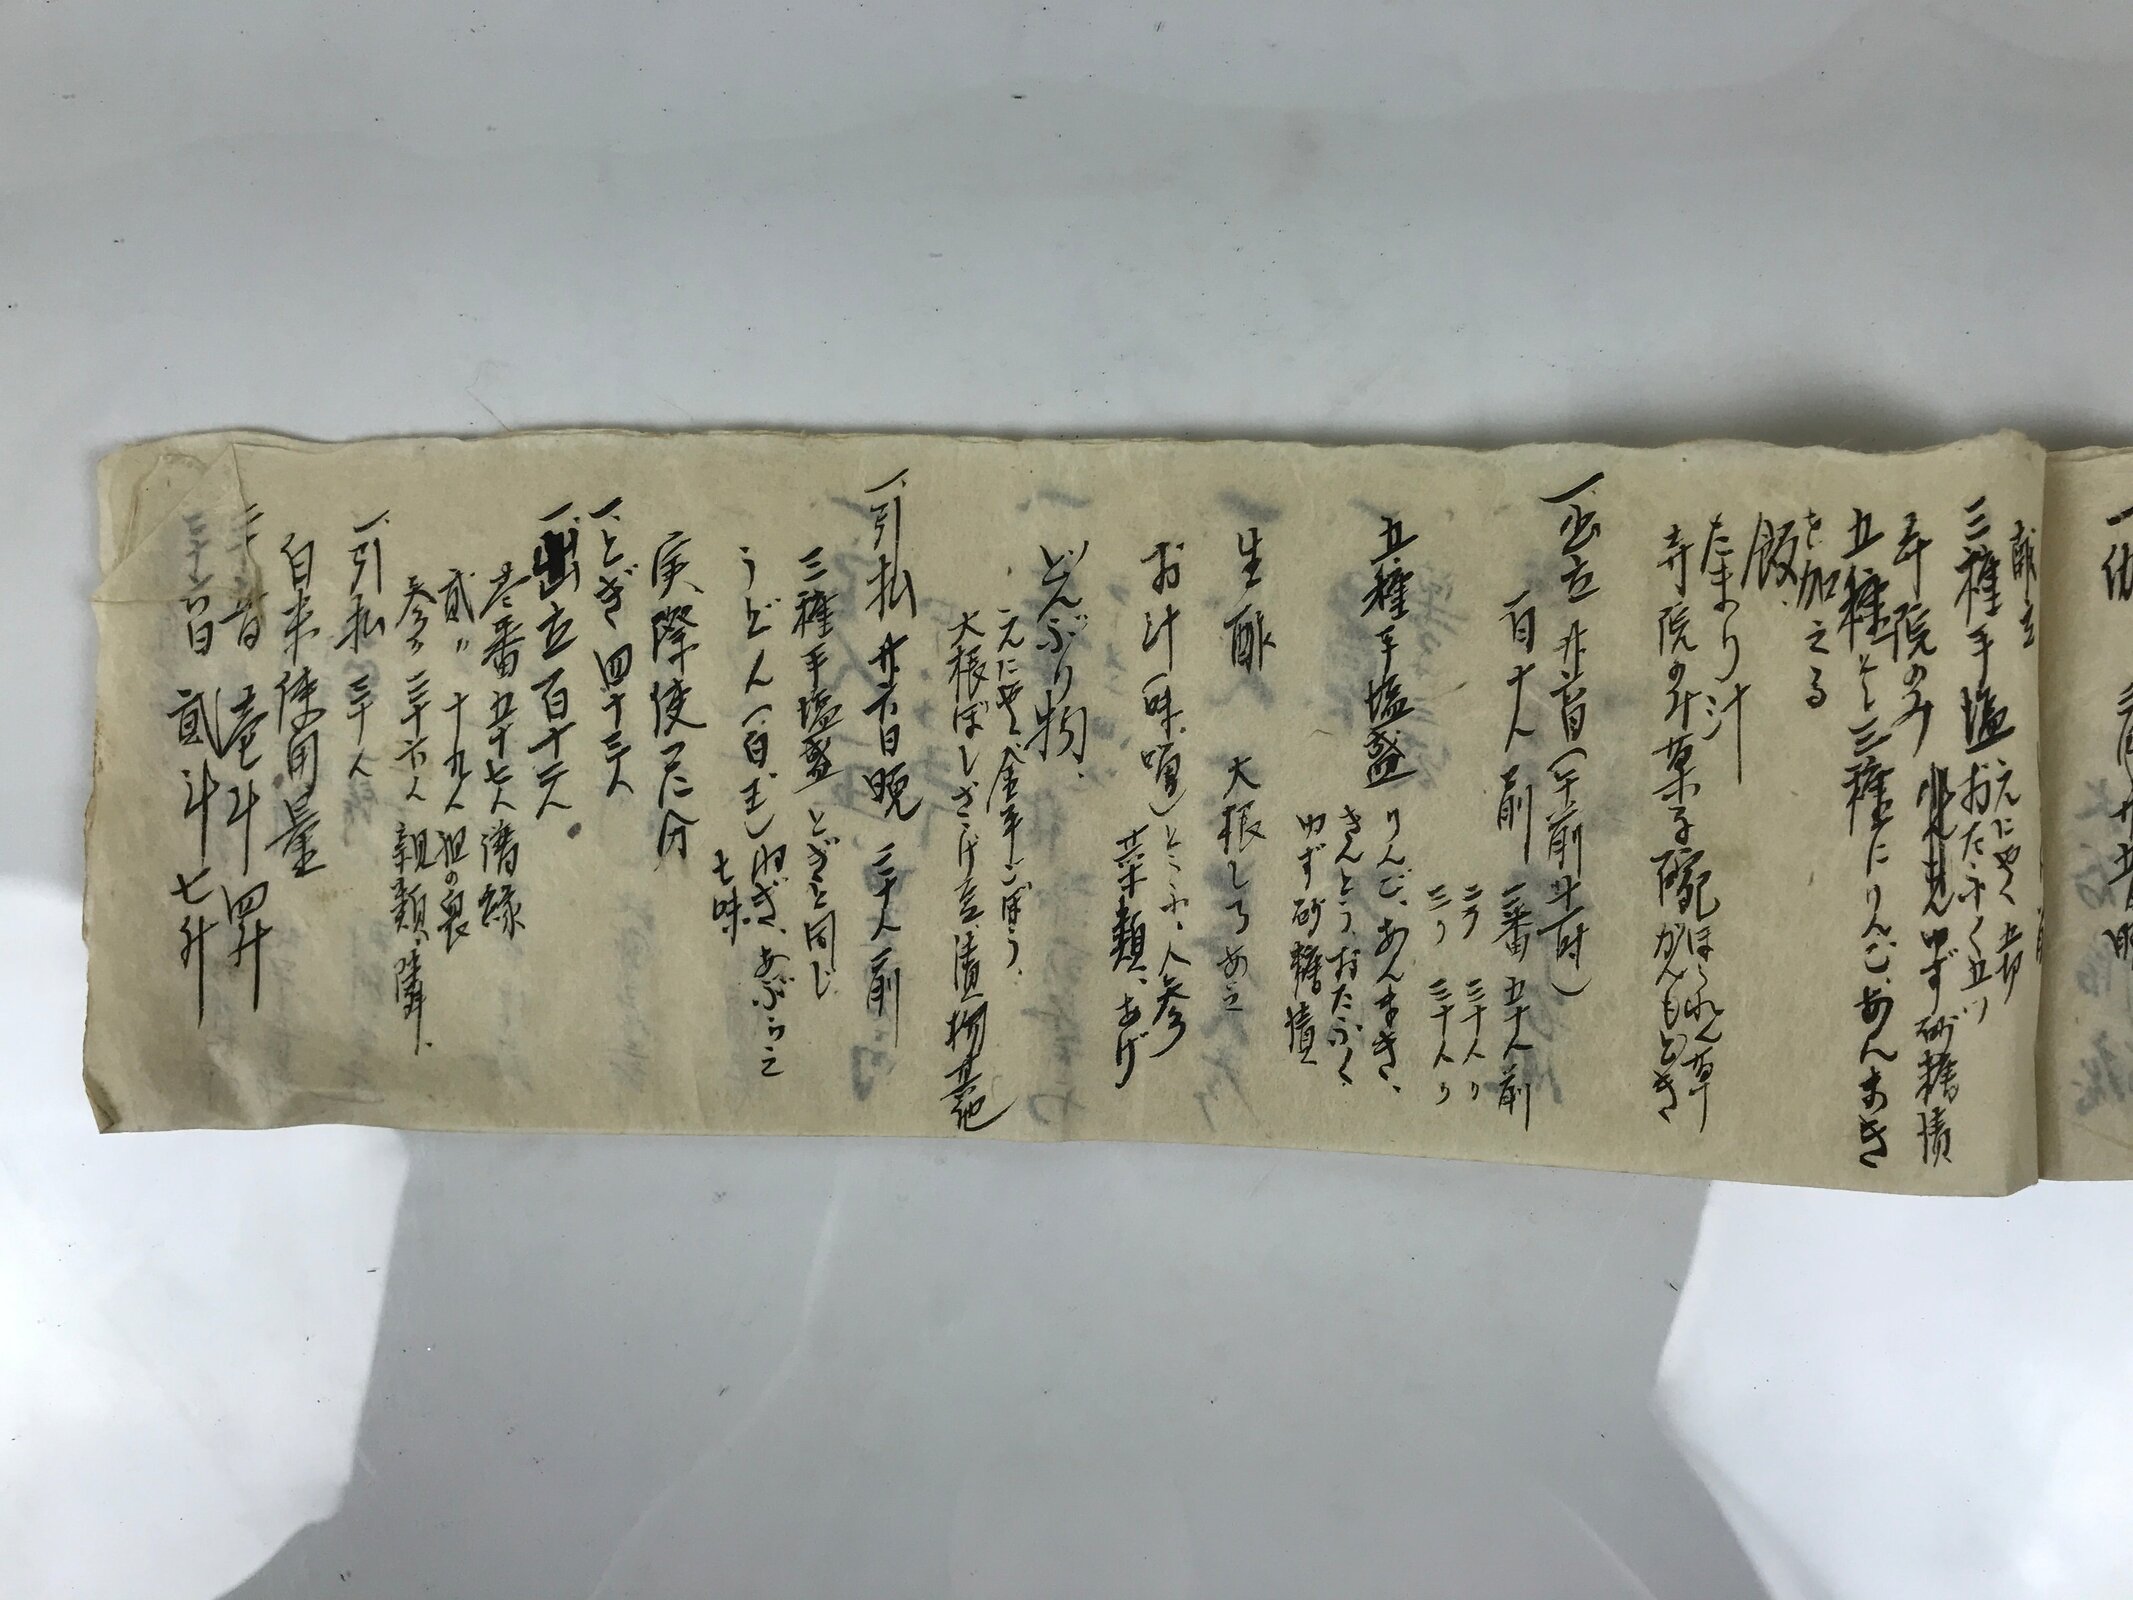 献立
三種手塩
えにやく 五切
おたふく五ツ
ゆず砂糖漬
寺院のみ
五種とし三種にりんご、あんまき
を加える
飯、
たまり汁
寺院のみ菓子椀 ほうれん草
がんもどき
一、出立 廿六日(午前十時)
百十人前 一番 五十人前
二〃 三十人〃
三〃 三十人〃
五種手塩盛
りんご、あんまき、
きんとう、おたふく
ゆず砂糖漬
生酢 大根しろあえ
お汁(味噌) とふ、人参
菜類、あげ
どんぶり物、
えにやく、金平ごぼう、
大根ぼしざらげ
漬物其他
一、引払 廿六日晩 三十人前
三種手塩盛 とぎと同じ
うどん(百玉) ねぎ、あぶらえ
七味
実際使った分
一、とぎ 四十三人
一、出立 百十二人
壱番 五十七人 濃縁
弐〃 十九人 組の衆
参〃 三十六人 親類、隣
一、引払 三十人
白米使用量
二十五日 壱斗四升
二十六日 弐斗七升
一、